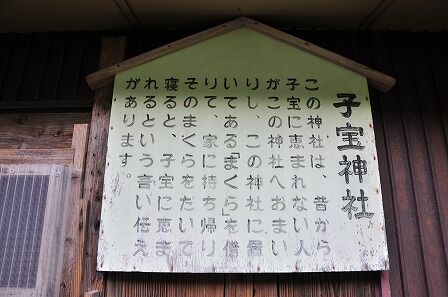 子宝神社
この神社は、昔から
子宝に恵まれない人
がこの神社へおまい
りし、この神社に置
いてある「まくら」を借
りて、家に持ち帰り
そのまくらをだいて
寝ると、子宝に恵ま
れるという言い伝え
があります。